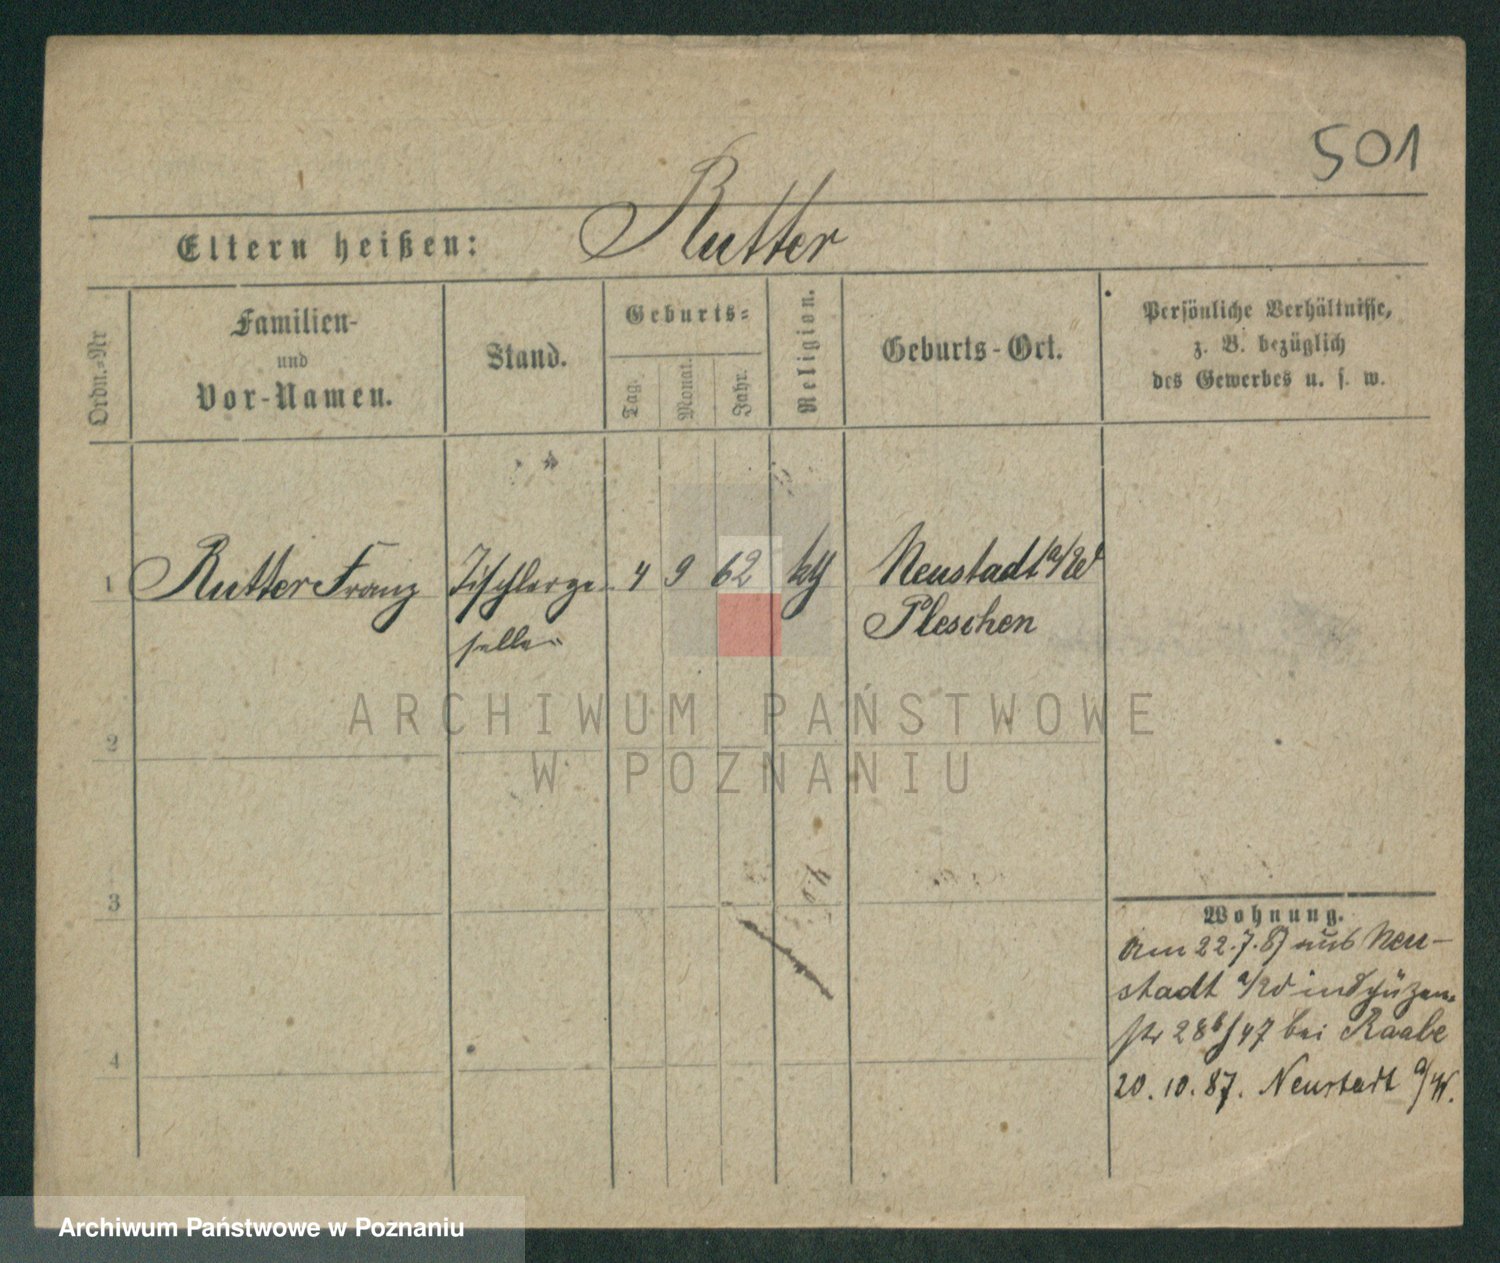 501
Eltern heißen: Rutter
Ordn.-Nr
Familien-
und
Vor-Namen.
Stand.
Geburts-
Tag.
Monat.
Jahr.
Religion.
Geburts-Ort.
Persönliche Verhältnisse,
z. B. bezüglich
des Gewerbes u. s. w.
1 Rutter Franz Tischlerge- 4 9 62 Neustadt a/W
selle Pleschen
ARCHIWUM PAŃSTWOWE
W POZNANIU
2
3
4
Wohnung.
Am 22.7.87 aus Neu-
stadt a/W in Schützen-
str 28b/47 bei Raabe
20.10.87. Neustadt a/W.
Archiwum Państwowe w Poznaniu